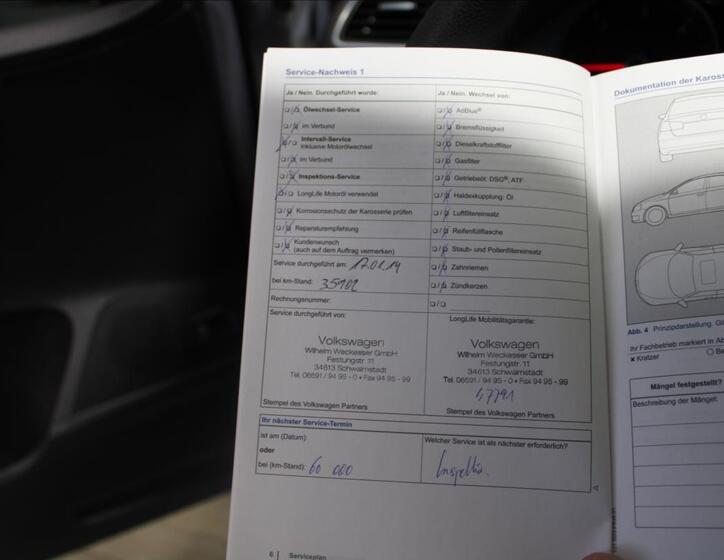 Service-Nachweis 1
Ja / Nein. Durchgeführt wurde:
Ölwechsel-Service
im Verbund
Intervall-Service
inklusive Motorölwechsel
im Verbund
Inspektions-Service
LongLife Motoröl verwendet
Korrosionsschutz der Karosserie prüfen
Reparaturempfehlung
Kundenwunsch
(auch auf dem Auftrag vermerken)
Service durchgeführt am: 17.01.14
bei km-Stand: 35902
Rechnungsnummer:
Service durchgeführt von:
Volkswagen
Wilhelm Weckesser GmbH
Festungstr. 11
34613 Schwalmstadt
Tel. 06691 / 94 95 - 0 • Fax 94 95 - 99
Stempel des Volkswagen Partners
Ja / Nein. Wechsel von:
AdBlue®
Bremsflüssigkeit
Dieselkraftstofffilter
Gasfilter
Getriebeöl: DSG®, ATF
Haldexkupplung: Öl
Luftfiltereinsatz
Reifenfüllflasche
Staub- und Pollenfiltereinsatz
Zahnriemen
Zündkerzen
LongLife Mobilitätsgarantie:
Volkswagen
Wilhelm Weckesser GmbH
Festungstr. 11
34613 Schwalmstadt
Tel. 06691 / 94 95 - 0 • Fax 94 95 - 99
Stempel des Volkswagen Partners
Ihr nächster Service-Termin
ist am (Datum):
oder
bei (km-Stand): 60 000
Welcher Service ist als nächster erforderlich?
6 Serviceplan
Dokumentation der Karos
Abb. 4 Prinzipdarstellung.
Ihr Fachbetrieb markiert in Ab
x Kratzer
Mängel festgestellt?
Beschreibung der Mängel: